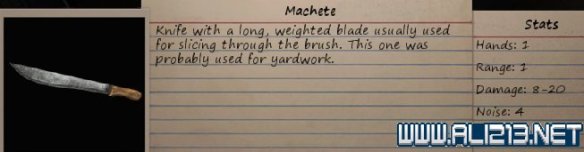 Machete
Knife with a long, weighted blade usually used
for slicing through the brush. This one was
probably used for yardwork.
Stats
Hands: 1
Range: 1
Damage: 8-20
Noise: 4
WWW.ALI213.NET